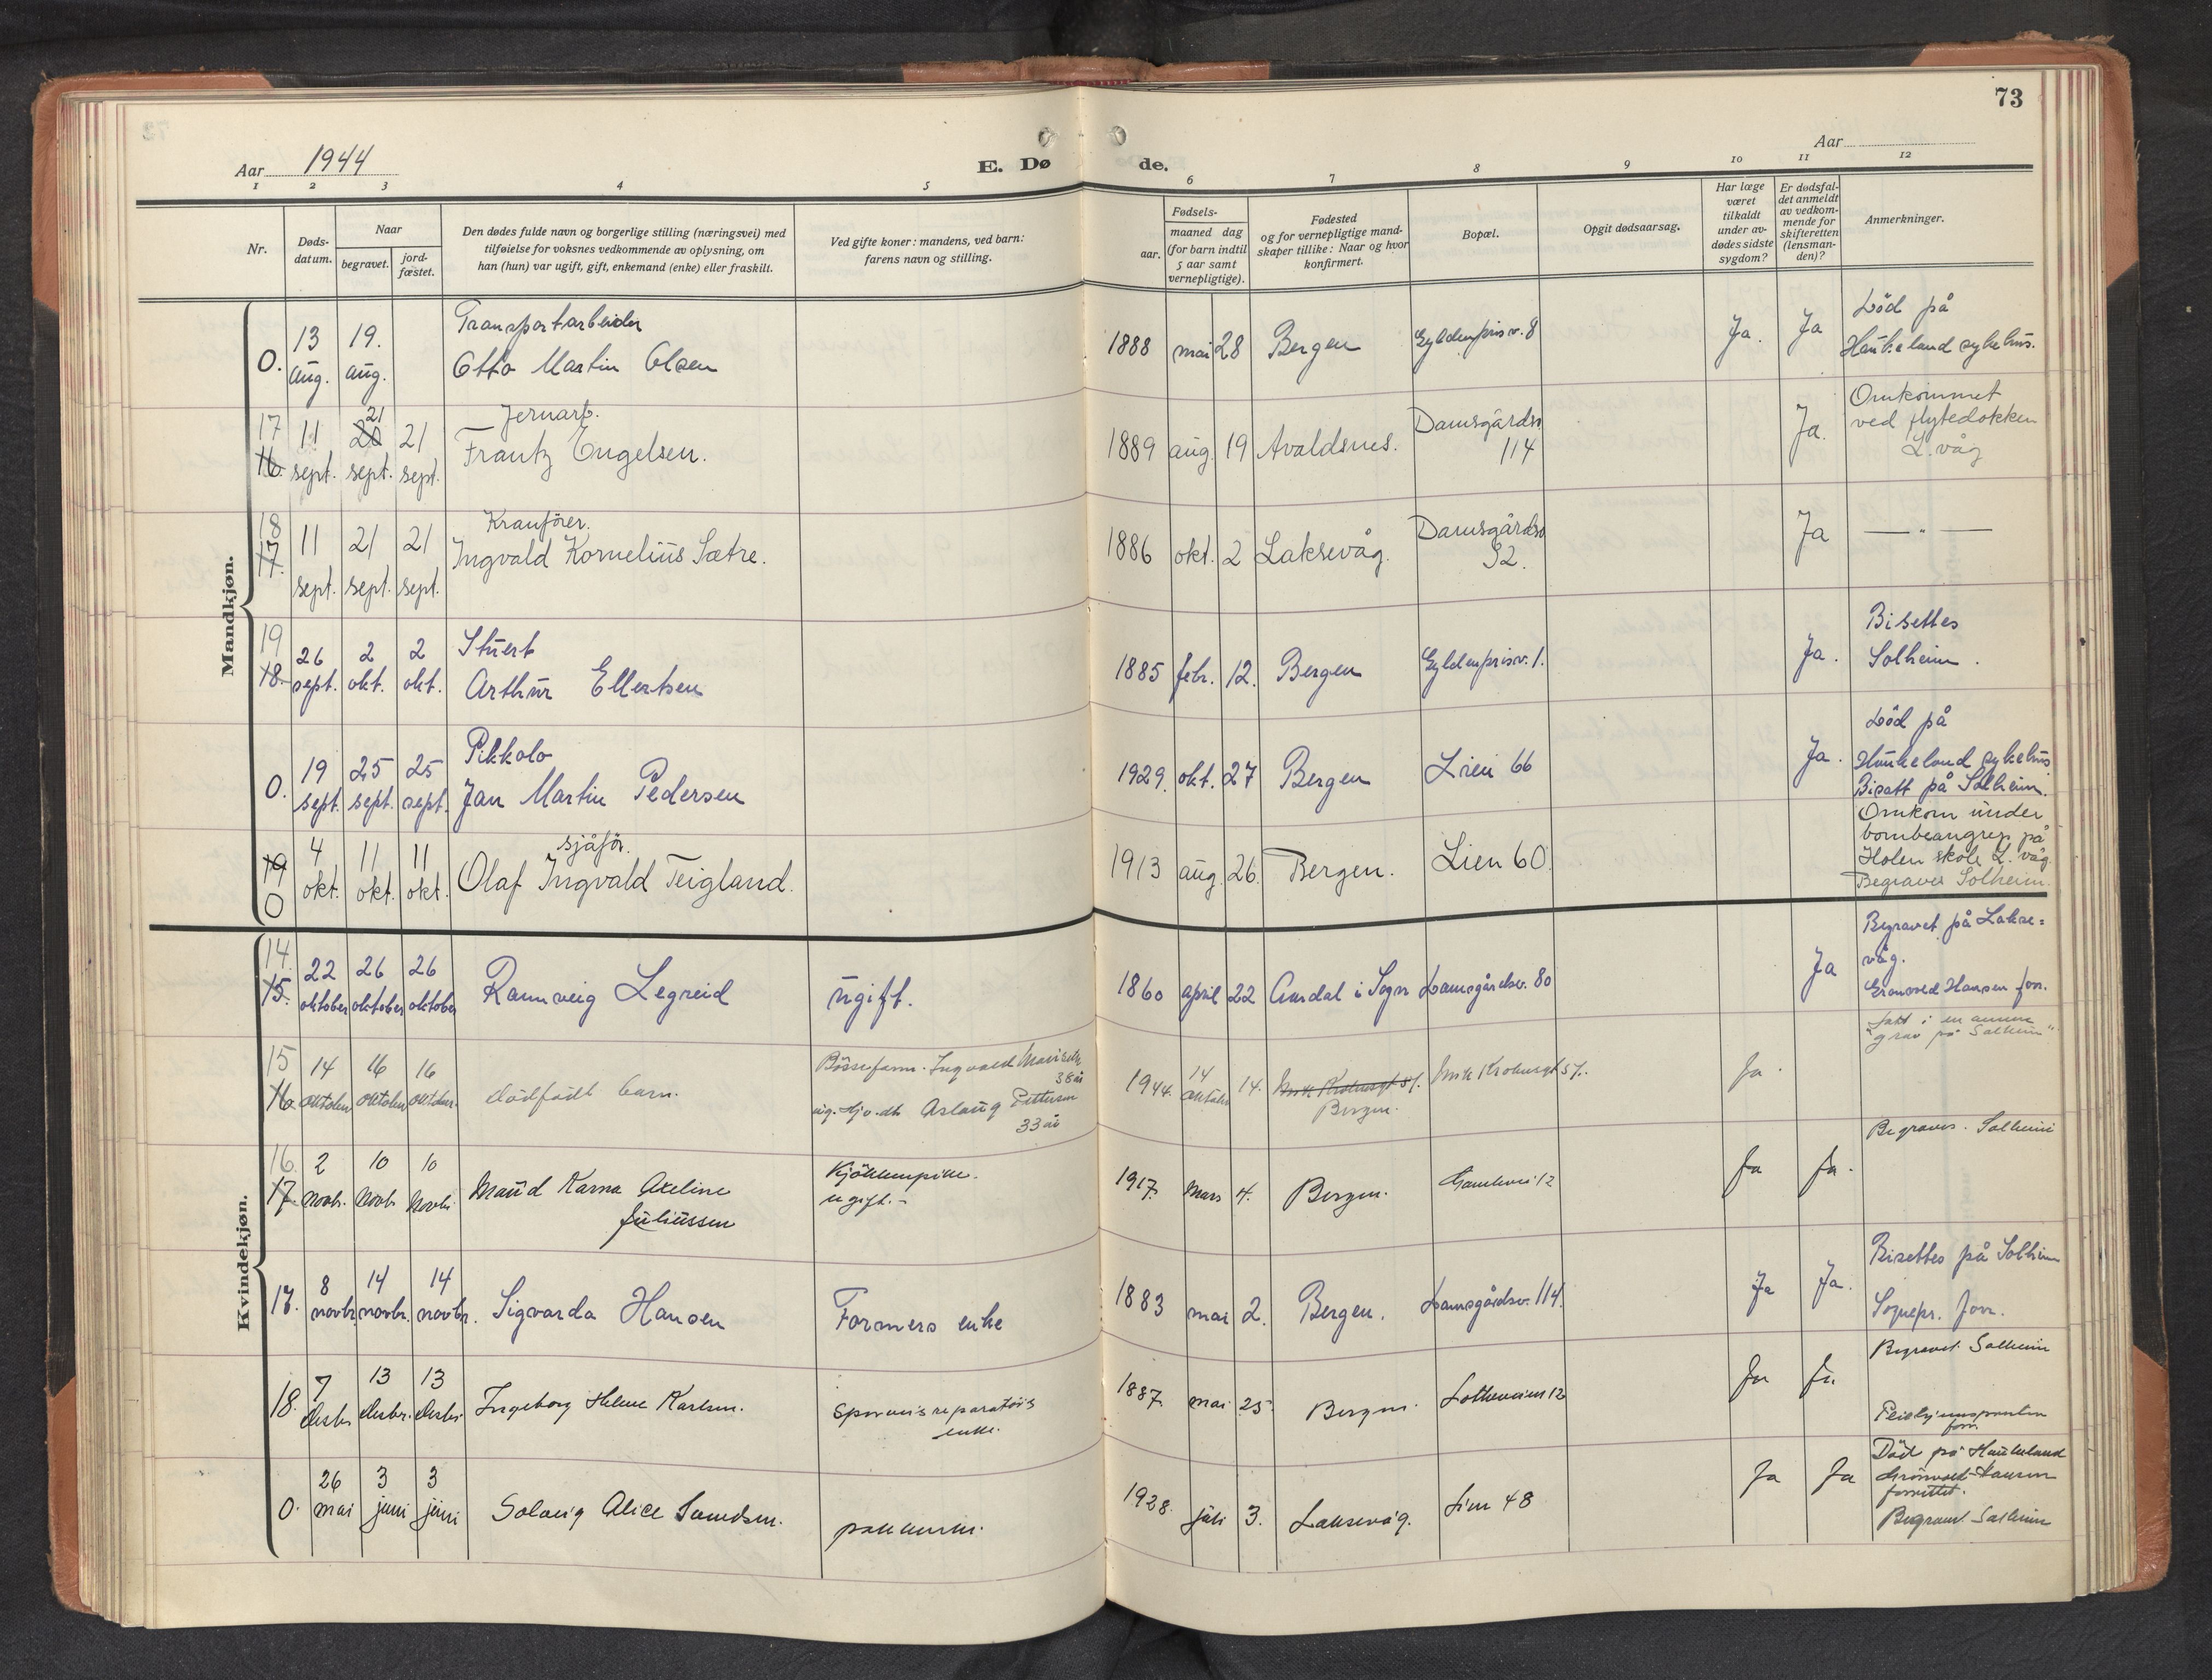 73
Aar 1944
E. Dø de.
Aar
1 2 3 4 5 6 7 8 9 10 11 12
Nr.
Døds-
datum.
Naar
begravet.
jord-
fæstet.
Den dødes fulde navn og borgerlige stilling (næringsvei) med
tilføielse for voksnes vedkommende av oplysning, om
han (hun) var ugift, gift, enkemand (enke) eller fraskilt.
Ved gifte koner: mandens, ved barn:
farens navn og stilling.
Fødsels-
aar.
maaned dag
(for barn indtil
5 aar samt
vernepligtige).
Fødested
og for vernepligtige mand-
skaper tillike: Naar og hvor
konfirmert.
Bopæl.
Opgit dødsaarsag.
Har læge
været
tilkaldt
under av-
dødes sidste
sygdom?
Er dødsfal-
det anmeldt
av vedkom-
mende for
skifteretten
(lensman-
den)?
Anmerkninger.
Mandkjøn.
0. 13 aug. 19. aug.
Transportarbeider
Otto Martin Olsen
1888 mai 28 Bergen Gyldenprisv. 8 Ja. Ja
Död på
Haukeland sykehus.
17 16. 11 sept. 21 20 sept. 21 sept.
Jernarb.
Frantz Engelsen.
1889 aug. 19 Avaldsnes. Damsgårdsv 114 Ja.
Omkommet
ved flytedokken
L.våg
18 17. 11 sept. 21 sept. 21 sept.
Kranförer.
Ingvald Kornelius Sætre.
1886 okt. 2 Laksevåg. Damsgårdsv 92. Ja
— " —
19 18. 26 sept. 2 okt. 2 okt.
Stuert
Arthur Ellertsen
1885 febr. 12. Bergen Gyldenprisv. 1. Ja.
Bisettes
Solheim.
0. 19 sept. 25 sept. 25 sept.
Pikkolo
Jan Martin Pedersen
1929. okt. 27 Bergen Lien 66 Ja.
Död på
Haukeland sykehus
Bisatt på Solheim.
19 0 4 okt. 11 okt. 11 okt.
sjåför.
Olaf Ingvald Teigland.
1913 aug. 26. Bergen. Lien 60.
Omkom under
bombeangrep på
Holen skole L. våg.
Begraves Solheim.
Kvindekjøn.
14. 15. 22 oktober 26 oktober 26 oktober
Rannveig Legreid
ugift.
1860 april 22 Aurdal i Sogn Damsgårdsv. 80 Ja
Begravet på Lakse=
våg.
Grønvold Hansen forr.
"lagt i en annen
grav på Solheim"
15 16 14 oktober 16 oktober 16 oktober.
dödfödt barn.
Ingvald
38 år
Aslaug Pettersen
33 år
1944. 14 oktober 14. Bergen. Ja.
16. 17. 2 Novb. 10 Novb. 10 Novbr.
Maud Karna Axeline
Juliussen
Kjökkenpike.
ugift.-
1917. Mars 4. Bergen. 12 Ja Ja.
Begraves. Solheim
17. 8 novbr. 14 novbr. 14 novbr.
Sigvarda Hansen
Formers enke
1883 mai 2. Bergen. Damsgårdsv. 114. Ja Ja.
Bisettes på Solheim
Sognepr. forr.
18. 7 desbr. 13 desbr. 13 desbr.
Ingeborg Helene Karlsen.
Sporveisreparatörs
enke.
1887. mai 25. Bergen. 12 Ja Ja
Begravet. Solheim
forr.
0. 26 mai 3 juni 3 juni
Solveig Alice Samdsen.
1928. juli 3. Laksevåg. Lien 48 Ja Ja
Död på Haukeland
Grönvold-Hansen
forrettet.
Begravet. Solheim